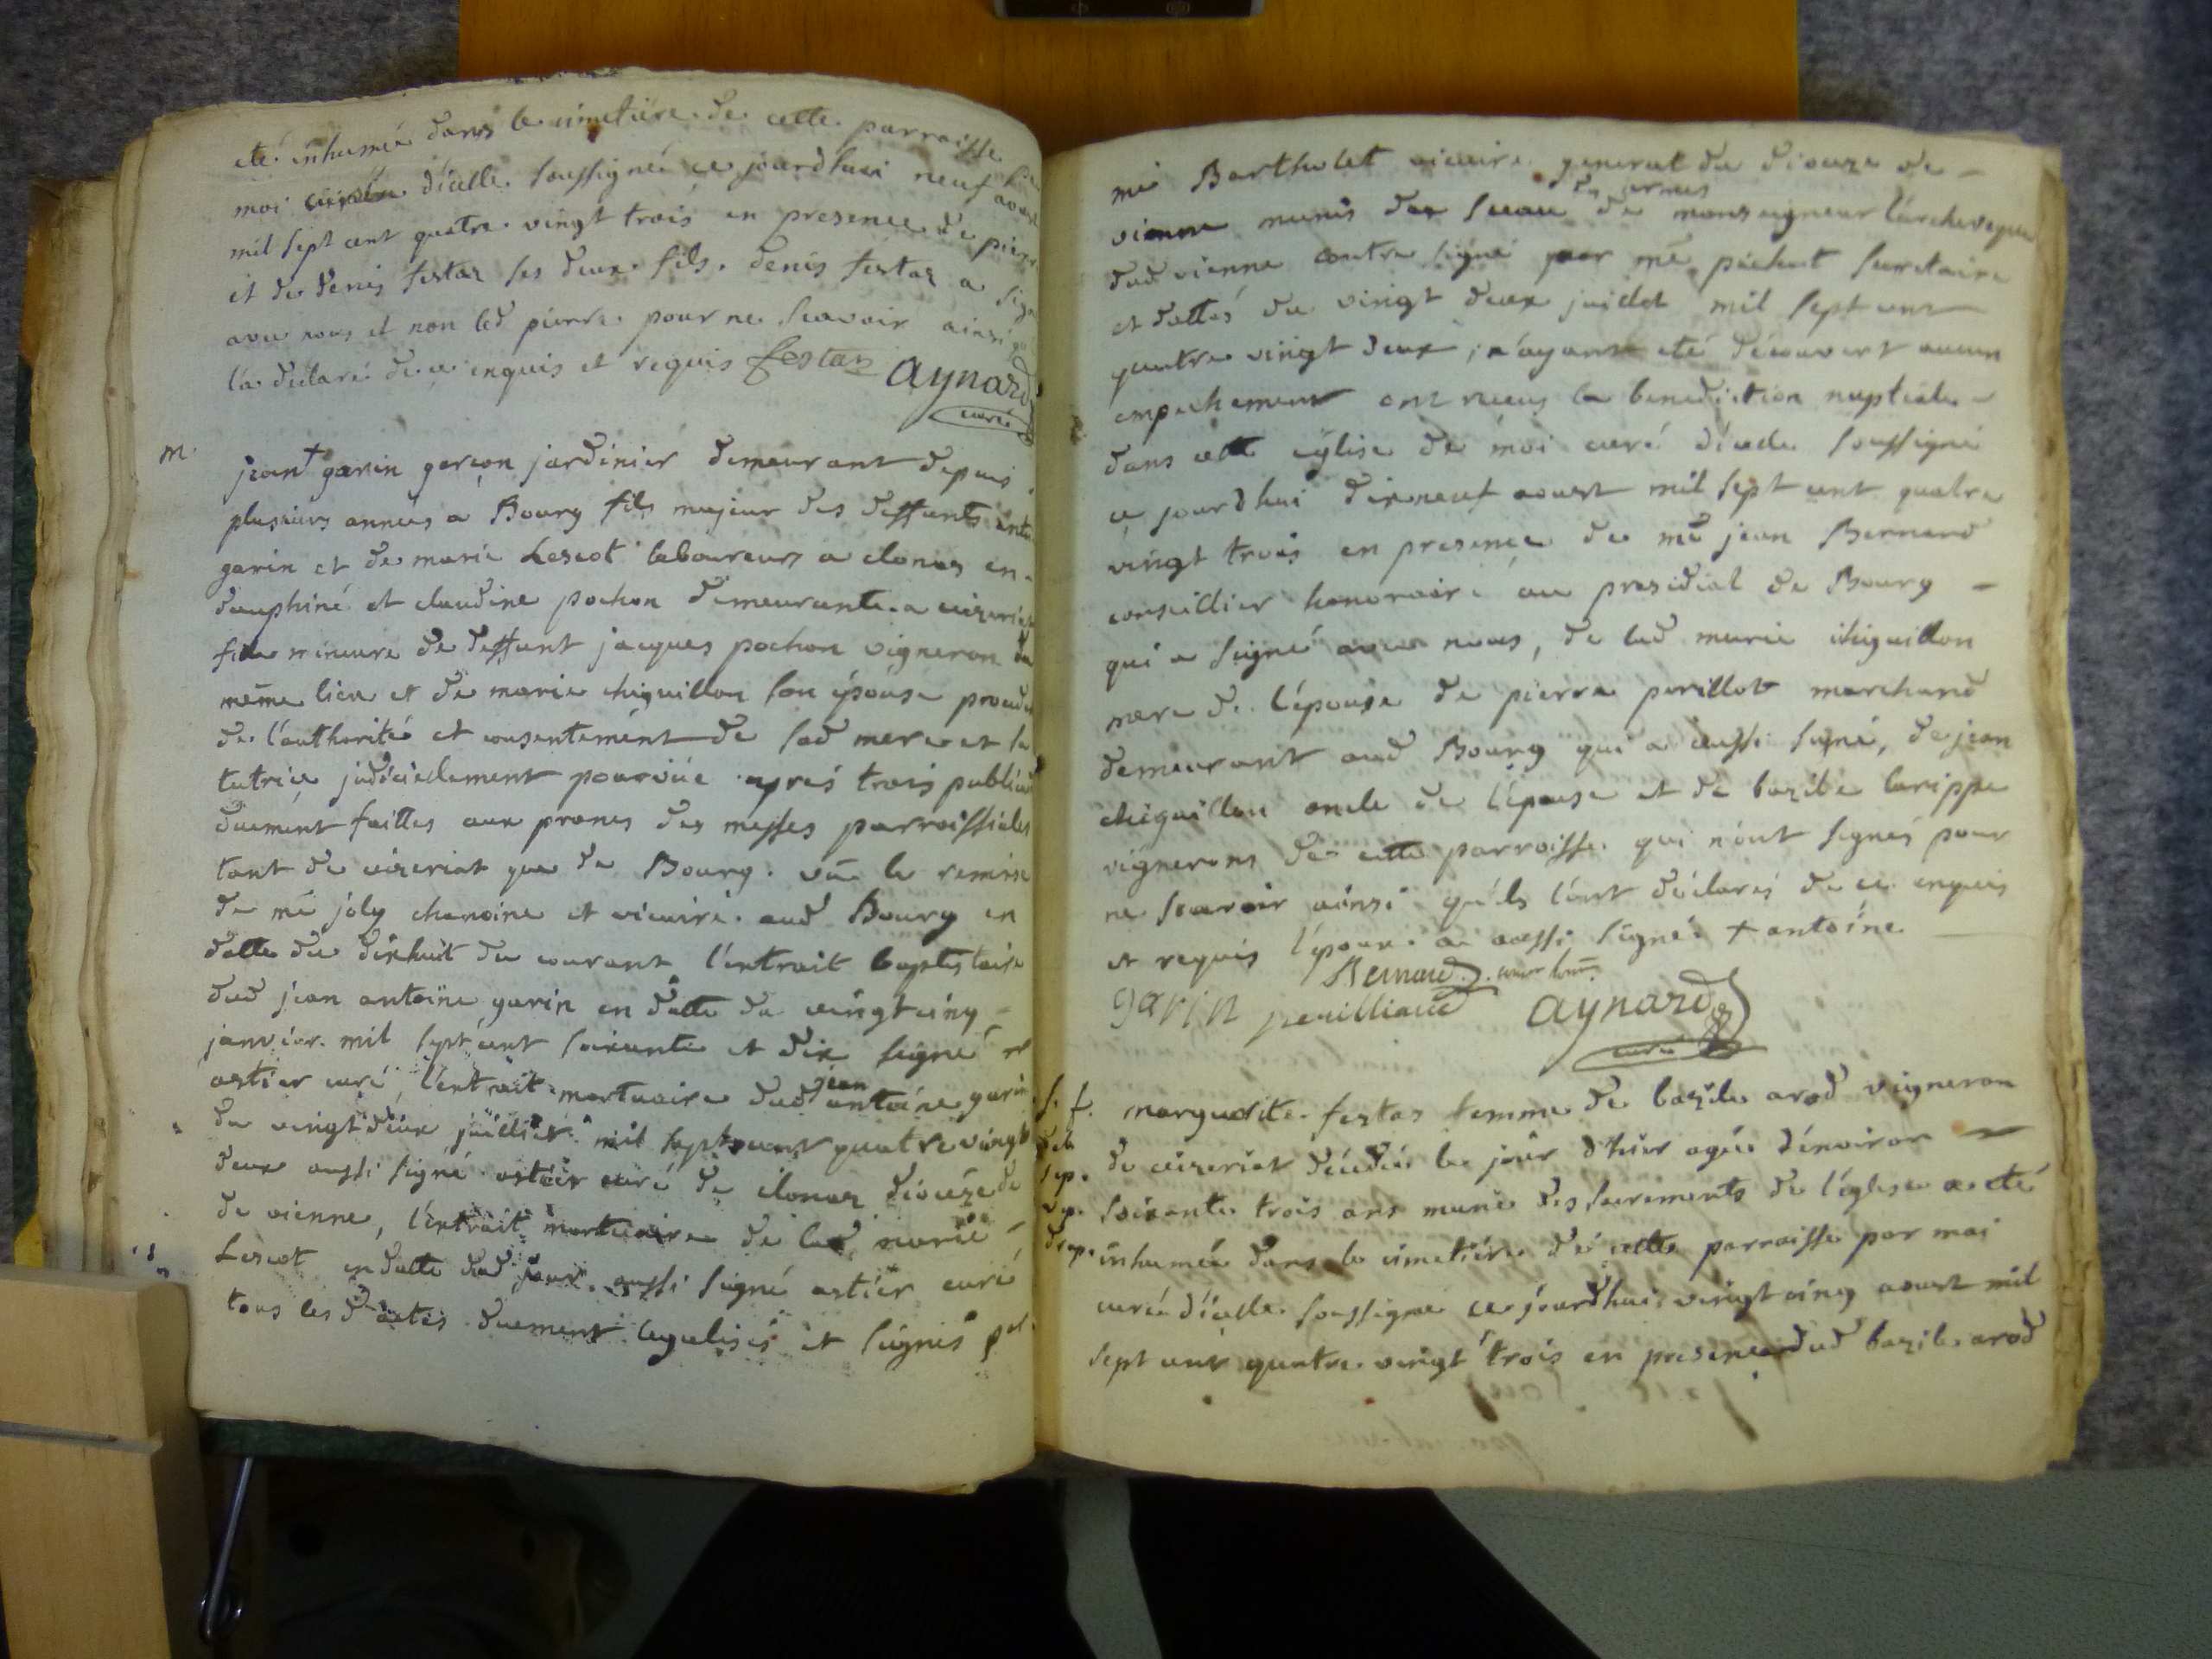 eté inhumée dans le cimetiere de cette parroisse par
moi curé d'icelle soussigné ce jourdhui neuf aoust
mil sept cent quatre vingt trois en presence de pierre
et de denis festaz ses deux fils. denis festaz a signé
avec nous et non led pierre pour ne scavoir ainsi qu
l'a declaré de ce enquis et requis festaz Aynard
curé
m.
jean + garin garçon jardinier demeurant depuis
plusieurs années a Bourg fils majeur des deffunts anto
garin et de marie Lescot laboureurs a clonas en
dauphiné et claudine pochon demeurante a ceizeriat
fille mineure de deffunt jacques pochon vigneron du
même lieu et de marie chiguillon son épouse procede
de l'authorité et consentement de sad mere et sa
tutrice judiciellement pourvüe apres trois publica
duement faittes aux prones des messes parroissiales
tant de ceizeriat que de Bourg. vü la remise
de me joly chanoine et vicaire aud Bourg en
datte du dixhuit du courant l'extrait baptistaire
dud jean antoine garin en datte du vingt cinq
janvier mil sept cent soixante et dix signé
astier curé, l'extrait mortuaire dud jean antoine garin
du vingt deux juillier mil sept cent quatre vingt
deux aussi signé astier curé de clonas diocèze de
de vienne, l'extrait mortuaire de lad marie
Lescot en datte dud jour aussi signé astier curé
tous les d actes duement legalisés et signés pr
me Bartholet vicaire general du dioceze de
vienne munis du sceau des armes de monseigneur l'archeveque
dud vienne contre signé par me pichat secretaire
et dattés du vingt deux juillet mil sept cent
quatre vingt deux; n'ayant eté découvert aucun
empechement ont reçus la benediction nuptiale
dans cette eglise de moi curé d'icelle soussigné
ce jourdhui dixneuf aoust mil sept cent quatre
vingt trois en presence de me jean Bernard
conseillier honoraire au presidial de Bourg
qui a signé avec nous, de lad marie chiguillon
mere de l'épouse de pierre perillot marchand
demeurant aud Bourg qui a aussi signé, de jean
chiguillon oncle de l'épouse et de bazile larippe
vignerons de cette parroisse qui n'ont signés pour
ne scavoir ainsi qu'ils l'ont déclarés de ce enquis
et requis l'epoux a aussi signé + antoine
Bernard
garin perilliaud Aynard
curé
s. f.
sep.
marguerite festas femme de bazile arod vigneron
de ceizeriat décédée le jour d'hier agée d'environ
soixante trois ans munie des sacrements de l'église a eté
inhumée dans le cimetiere de cette parroisse par moi
curé d'icelle soussigné ce jourdhui vingt cinq aoust mil
sept cent quatre vingt trois en presence dud bazile arod